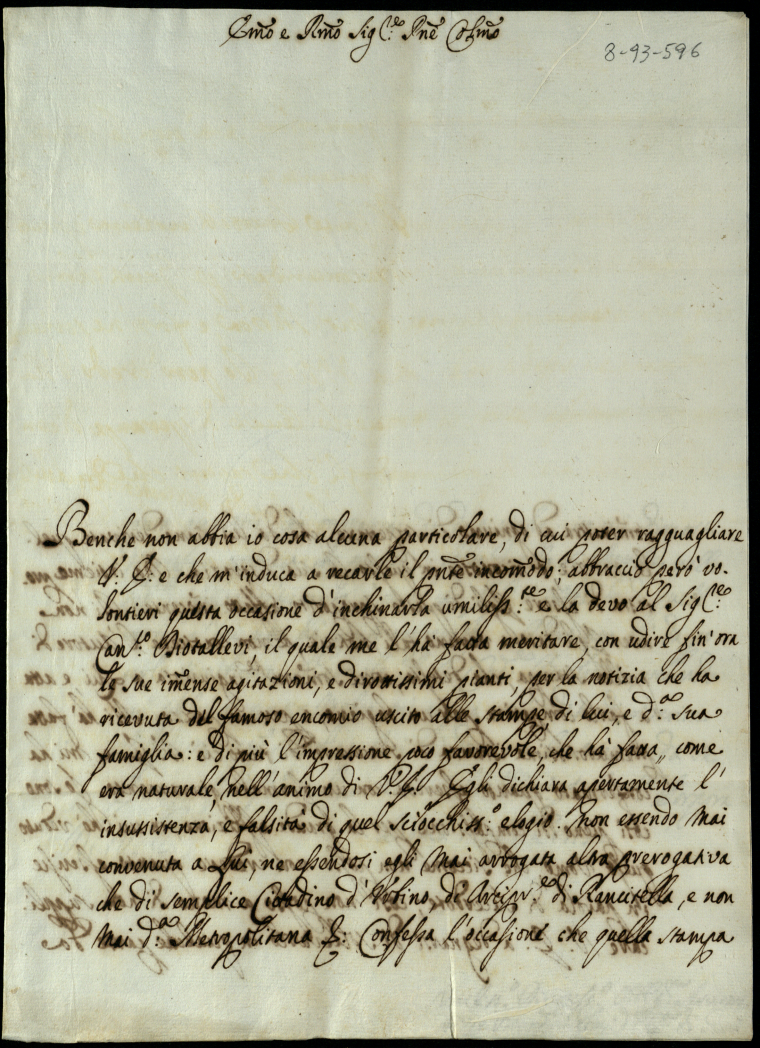 Em̃o e Rm̃o Sig.re Pnẽ Colm̃o
8-93-596
Benche non abbia io cosa alcuna particolare, di cui poter ragguagliare
V. E: e che m'induca a recarle il pnt̃e incom̃odo; abbraccio però vo-
lontieri questa occasione d'inchinarla umiliss.te e la devo al Sig.re
Can.co Biotallevi, il quale me l'ha fatta meritare, con udire fin'ora
le sue im̃ense agitazioni, e dirottissimi pianti, per la notizia che ha
ricevuta del famoso encomio uscito alle stampe, di lui, e d.a sua
famiglia: e di più l'impressione poco favorevole, che ha fatta, come
era naturale, nell'animo di V. E. Egli dichiara apertamente l'
insussistenza, e falsità di quel sciocchiss.o elogio non essendo mai
convenuta a Lui, ne essendosi egli mai arrogata altra prerogativa
che di semplice Cittadino d'Urbino, di Arcipr.e di Rancitella, e non
mai d.a Metropolitana Confessa l'occasione che quella stampa